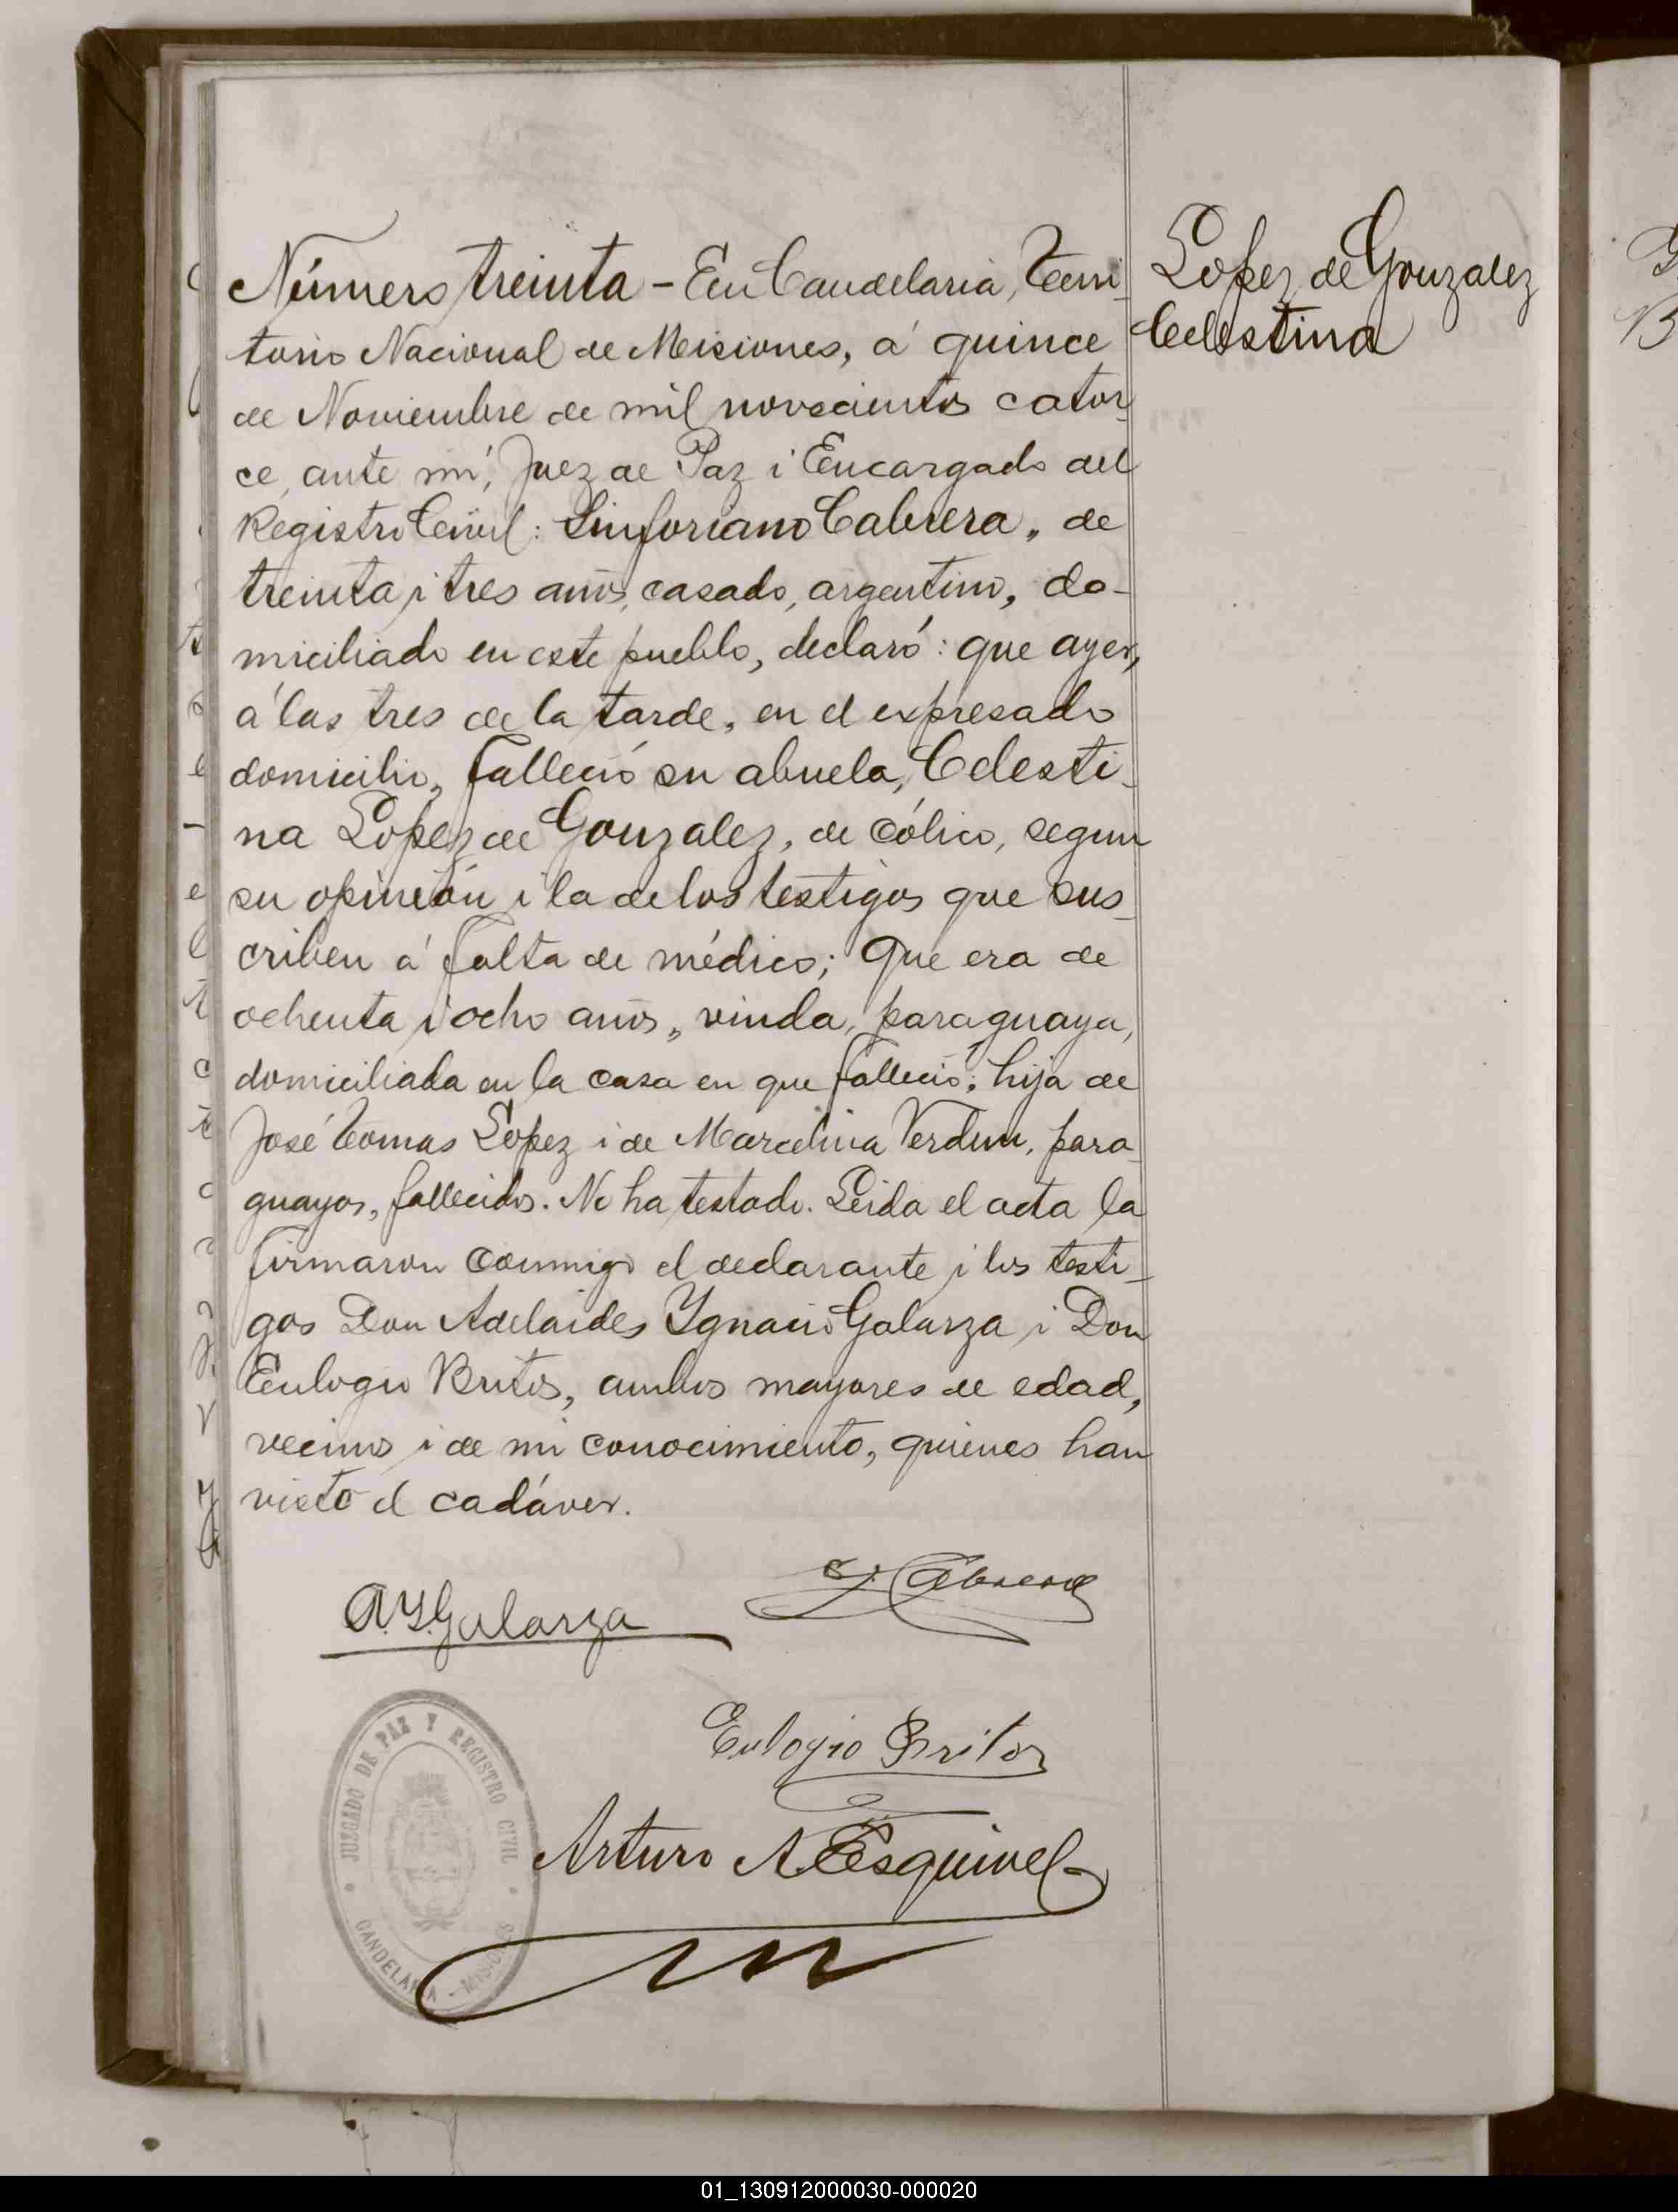 Número treinta - En Candelaria, Terri-
torio Nacional de Misiones, á quince
de Noviembre de mil novecientos cator-
ce, ante mí, Juez de Paz i Encargado del
Registro Civil: Sinforiano Cabrera, de
treinta i tres años, casado, argentino, do-
miciliado en este pueblo, declaró: que ayer,
á las tres de la tarde, en el expresado
domicilio, falleció su abuela, Celesti-
na Lopez de Gonzalez, de cólico, segun
su opinión i la de los testigos que sus-
criben á falta de médico; Que era de
ochenta i ocho años, viuda, paraguaya,
domiciliada en la casa en que falleció; hija de
José Tomas Lopez i de Marcelina Verdun, para-
guayos, fallecidos. No ha testado. Leida el acta la
firmaron conmigo el declarante i los testi-
gos Don Adelaides Ygnacio Galarza i Don
Eulogio Britos, ambos mayores de edad,
vecinos i de mi conocimiento, quienes han
visto el cadáver.
Lopez de Gonzalez
Celestina
A.Y.Galarza
S. Cabrera
Eulogio Britos
Arturo A Esquivel
JUZGADO DE PAZ Y REGISTRO CIVIL
CANDELARIA - MISIONES
01_130912000030-000020